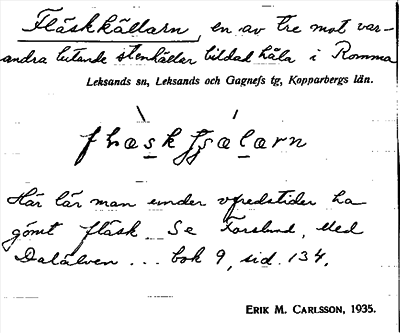 Fläskkällarn, en av tre mot var-
andra lutande stenhällar bildad håla i Romma
Leksands sn, Leksands och Gagnefs tg, Kopparbergs län.
Här lär man under ofredstider ha
gömt fläsk. Se Forslund, Med
Dalälven ... bok 9, sid. 134.
ERIK M. CARLSSON, 1935.